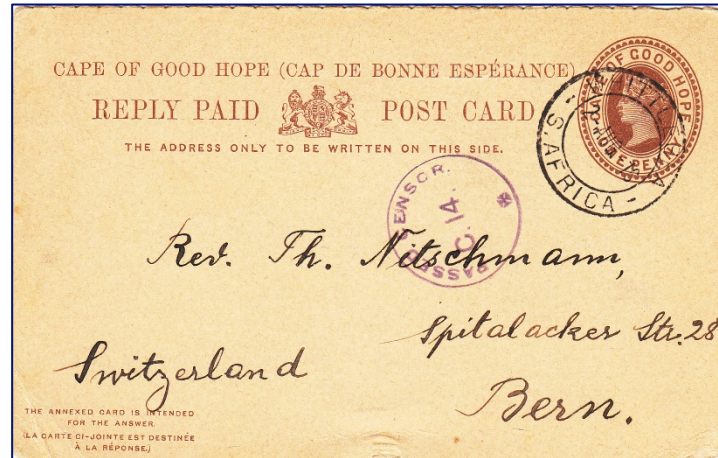 CAPE OF GOOD HOPE (CAP DE BONNE ESPÉRANCE)
REPLY PAID POST CARD
THE ADDRESS ONLY TO BE WRITTEN ON THIS SIDE.
OF GOOD HOPE
ONE PENNY
S. AFRICA
PASSED CENSOR.
C. 14.
Rev. Th. Nitschmann,
Spitalacker Str. 28
Switzerland
Bern.
THE ANNEXED CARD IS INTENDED
FOR THE ANSWER.
(LA CARTE CI-JOINTE EST DESTINÉE
À LA RÉPONSE.)